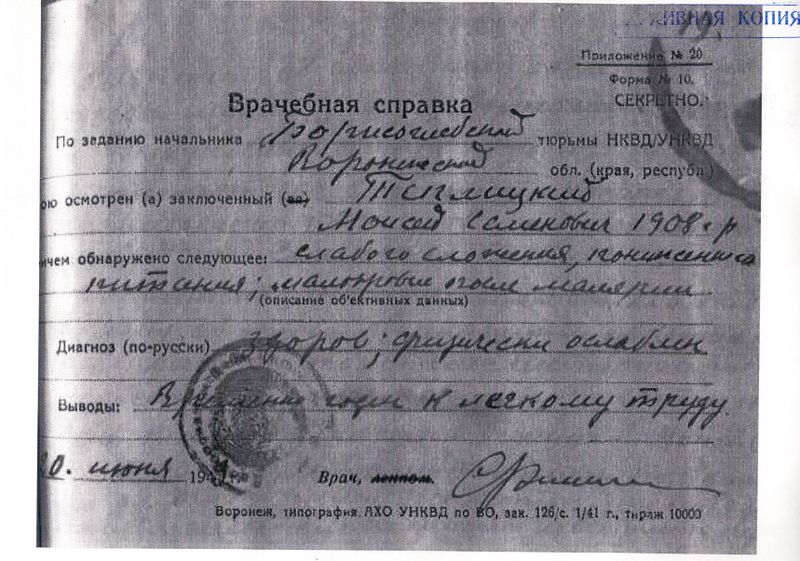 АРХИВНАЯ КОПИЯ
Приложение № 20
Форма № 10.
СЕКРЕТНО.
Врачебная справка
По заданию начальника Борисоглебской тюрьмы НКВД/УНКВД
Воронежской обл. (края, республ.)
ою осмотрен (а) заключенный (ая) Теплицкий
Моисей Семенович 1908 г р
ичем обнаружено следующее: слабого сложения, пониженного
питания; малокровие после малярии
(описание об'ективных данных)
Диагноз (по-русски) здоров; физически ослаблен
Выводы: Временно годен к легкому труду.
20. июня 194 г. Врач,
Воронеж, типография АХО УНКВД по ВО, зак. 126/с. 1/41 г., тираж 10000